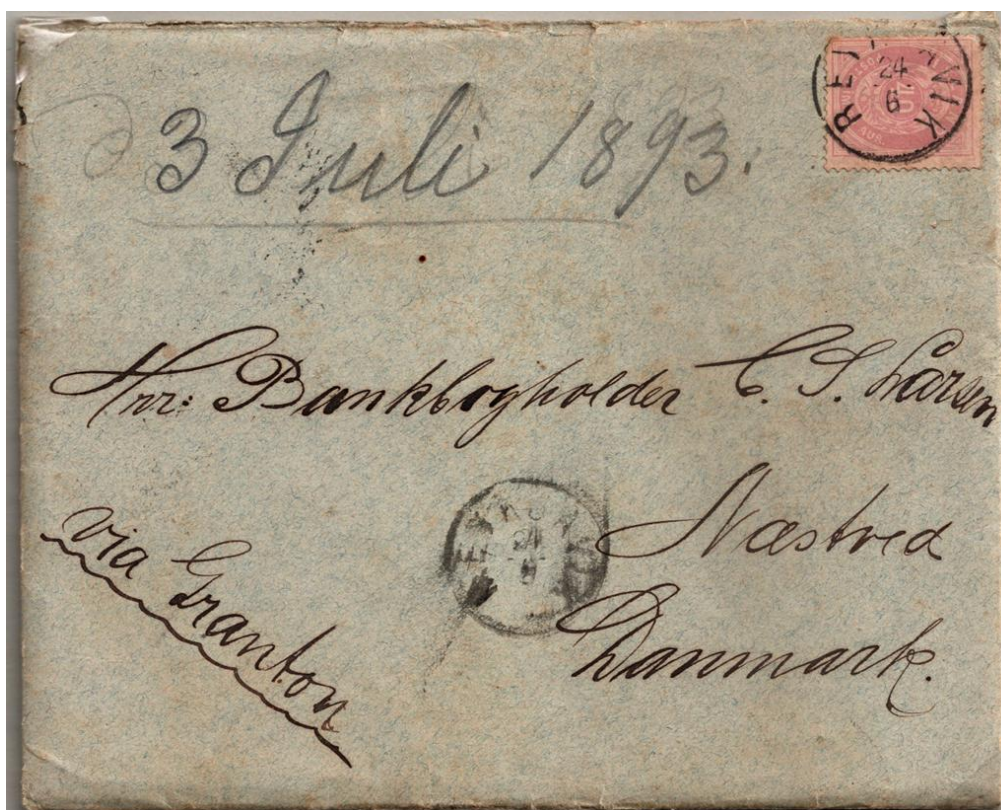 3 Juli 1893.
24
6
Hrr: Bankbogholder C. S. Larsen
Næstved
Danmark.
via Granton
24
6